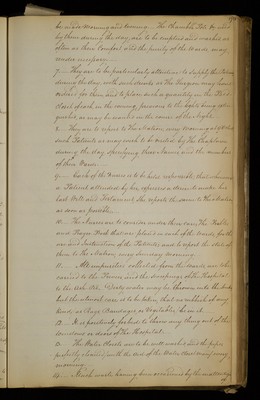 be made Morning and Evening. The Chamber Pots &c. used
by them during the day, are to be emptied and washed as
often as their Comfort and the purity of the Wards may
render necessary.
7. They are to be particularly attentive to supply the Patients
during the day with such drinks as the Surgeon may have
ordered for them, and to place such a quantity on the Bed
closet in the evening, previous to the lights being
as may be in the course of the Night.
8. They are to report to the Matron every Morning at
such Patients as may wish to be visited by the Chaplain
during the day, specifying their Names, and the number
of their Wards.
9. Each of the Nurses is to be held responsible, that whenever
a Patient attended by her, expresses a desire to make his
last Will and Testament She reports the same to the Matron
as soon as possible.
10. The Nurses are to consider under their care, The Bibles
and Prayer Books that are placed in each of the Wards, for the
use and Instruction of the Patients, and to report the state of
them to the Matron, every Sunday morning.
11. All impurities collected from the Wards are to be
carried to the Privies and the sweepings of the Hospital
to the Ash Pit. Dirty water may be thrown into the Sinks,
but the utmost care is to be taken, that no rubbish of any
kind, as Rags, Bandages, or Vegetables be in it.
12. It is positively forbid to throw any thing out of the
windows or doors of the Hospital.
13. The Water Closets are to be well washed and the pipes
perfectly cleared with the aid of the Water every
morning.
14. Much waste having been occasioned by the